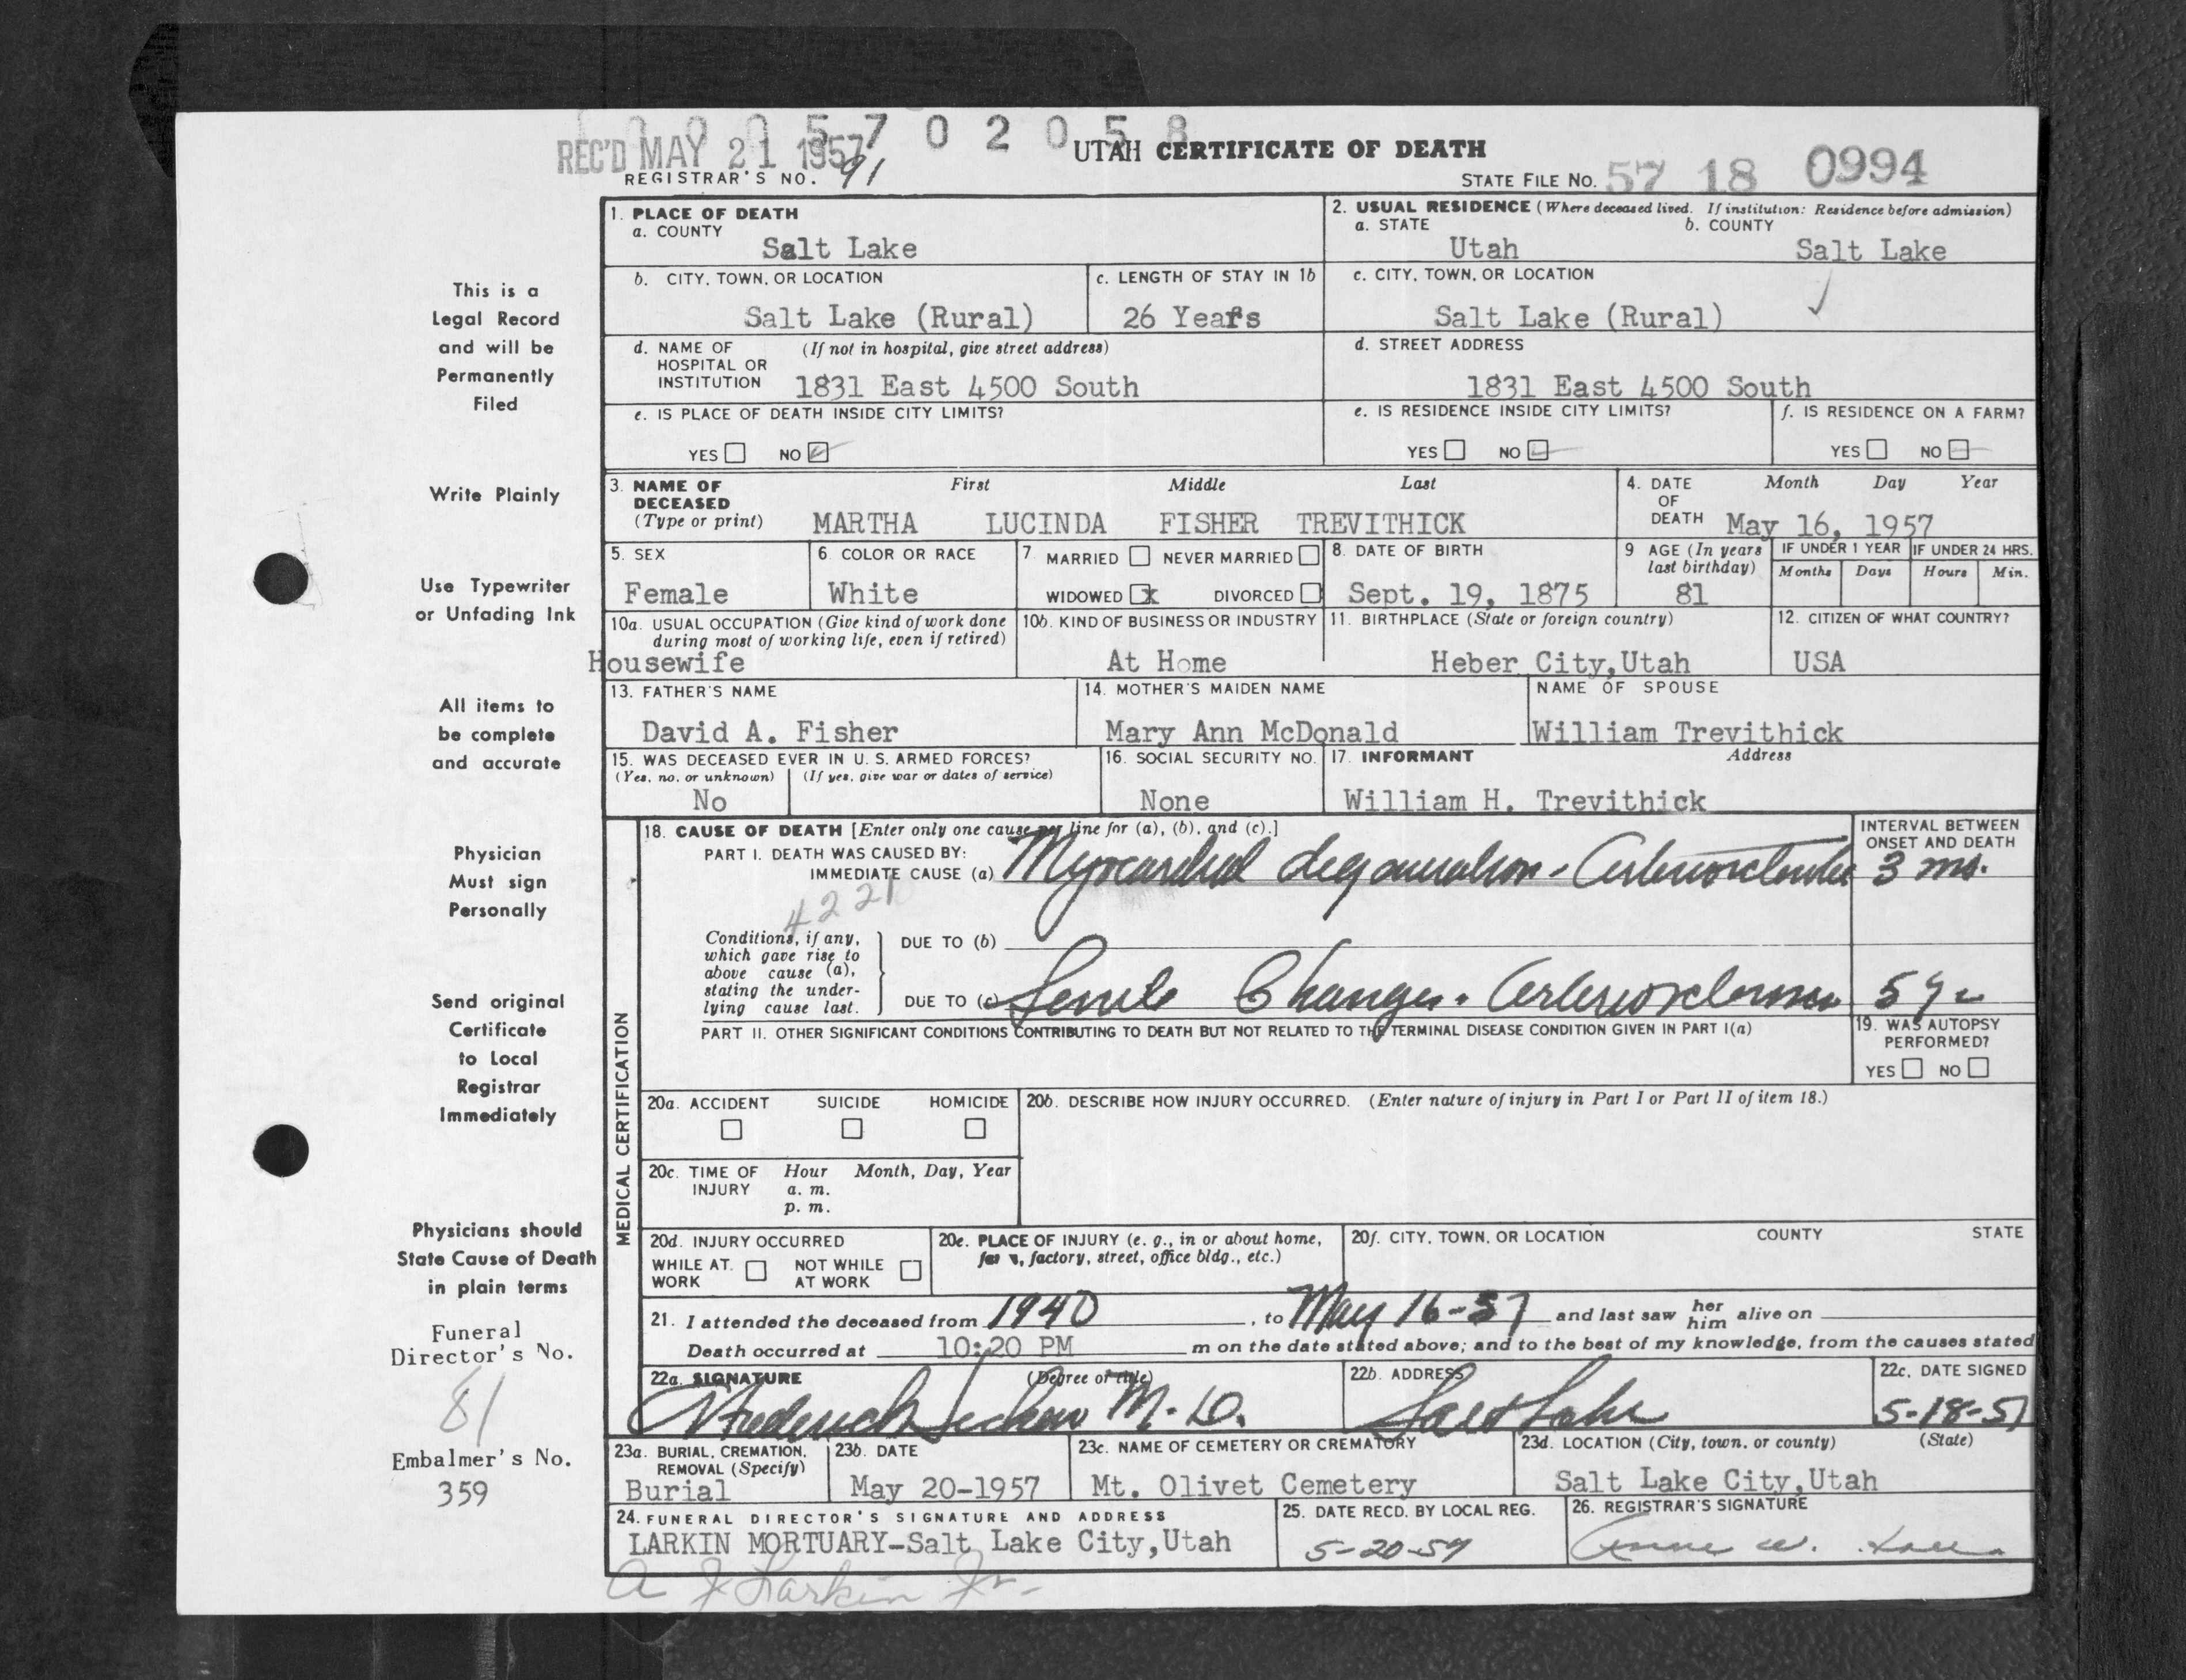 0 0 0 5 7 0 2 0 5 8
REC'D MAY 21 1957
UTAH CERTIFICATE OF DEATH
REGISTRAR'S NO. 91
STATE FILE NO. 57 18 0994
This is a
Legal Record
and will be
Permanently
Filed
Write Plainly
Use Typewriter
or Unfading Ink
All items to
be complete
and accurate
Physician
Must sign
Personally
Send original
Certificate
to Local
Registrar
Immediately
Physicians should
State Cause of Death
in plain terms
Funeral
Director's No.
81
Embalmer's No.
359
1. PLACE OF DEATH
a. COUNTY
Salt Lake
2. USUAL RESIDENCE (Where deceased lived. If institution: Residence before admission)
a. STATE b. COUNTY
Utah Salt Lake
b. CITY, TOWN, OR LOCATION
Salt Lake (Rural)
c. LENGTH OF STAY IN 1b
26 Years
c. CITY, TOWN, OR LOCATION
Salt Lake (Rural)
d. NAME OF (If not in hospital, give street address)
HOSPITAL OR
INSTITUTION 1831 East 4500 South
d. STREET ADDRESS
1831 East 4500 South
e. IS PLACE OF DEATH INSIDE CITY LIMITS?
YES NO
e. IS RESIDENCE INSIDE CITY LIMITS?
YES NO
f. IS RESIDENCE ON A FARM?
YES NO
3. NAME OF First Middle Last
DECEASED
(Type or print) MARTHA LUCINDA FISHER TREVITHICK
4. DATE Month Day Year
OF
DEATH May 16, 1957
5. SEX
Female
6. COLOR OR RACE
White
7. MARRIED NEVER MARRIED
WIDOWED x DIVORCED
8. DATE OF BIRTH
Sept. 19, 1875
9 AGE (In years
last birthday)
81
IF UNDER 1 YEAR IF UNDER 24 HRS.
Months Days Hours Min.
10a. USUAL OCCUPATION (Give kind of work done
during most of working life, even if retired)
Housewife
10b. KIND OF BUSINESS OR INDUSTRY
At Home
11. BIRTHPLACE (State or foreign country)
Heber City,Utah
12. CITIZEN OF WHAT COUNTRY?
USA
13. FATHER'S NAME
David A. Fisher
14. MOTHER'S MAIDEN NAME
Mary Ann McDonald
NAME OF SPOUSE
William Trevithick
15. WAS DECEASED EVER IN U. S. ARMED FORCES?
(Yes, no, or unknown) (If yes, give war or dates of service)
No
16. SOCIAL SECURITY NO.
None
17. INFORMANT Address
William H. Trevithick
MEDICAL CERTIFICATION
18. CAUSE OF DEATH [Enter only one cause per line for (a), (b), and (c).]
PART I. DEATH WAS CAUSED BY:
IMMEDIATE CAUSE (a) Myocardial degeneration - Arteriosclerotic
INTERVAL BETWEEN
ONSET AND DEATH
3 mo.
4221
Conditions, if any,
which gave rise to
above cause (a),
stating the under-
lying cause last.
DUE TO (b)
DUE TO (c) Senile Changes. Arteriosclerosis
PART II. OTHER SIGNIFICANT CONDITIONS CONTRIBUTING TO DEATH BUT NOT RELATED TO THE TERMINAL DISEASE CONDITION GIVEN IN PART I(a)
19. WAS AUTOPSY
PERFORMED?
YES NO
20a. ACCIDENT SUICIDE HOMICIDE
20b. DESCRIBE HOW INJURY OCCURRED. (Enter nature of injury in Part I or Part II of item 18.)
20c. TIME OF Hour Month, Day, Year
INJURY a. m.
p. m.
20d. INJURY OCCURRED
WHILE AT NOT WHILE
WORK AT WORK
20e. PLACE OF INJURY (e. g., in or about home,
farm, factory, street, office bldg., etc.)
20f. CITY, TOWN, OR LOCATION COUNTY STATE
21. I attended the deceased from 1940, to May 16-57 and last saw her him alive on
Death occurred at 10:20 PM m on the date stated above; and to the best of my knowledge, from the causes stated
22a. SIGNATURE (Degree or title)
Frederick M.D.
22b. ADDRESS
Salt Lake
22c. DATE SIGNED
5-18-57
23a. BURIAL, CREMATION,
REMOVAL (Specify)
Burial
23b. DATE
May 20-1957
23c. NAME OF CEMETERY OR CREMATORY
Mt. Olivet Cemetery
23d. LOCATION (City, town, or county) (State)
Salt Lake City,Utah
24. FUNERAL DIRECTOR'S SIGNATURE AND ADDRESS
LARKIN MORTUARY-Salt Lake City,Utah
A J Larkin Jr.
25. DATE RECD. BY LOCAL REG.
5-20-57
26. REGISTRAR'S SIGNATURE
Anne W.